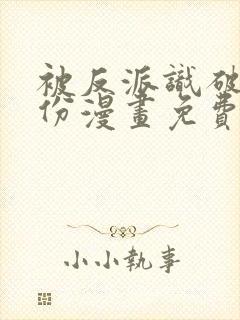 被反派識破
份漫畫免費
小小執事